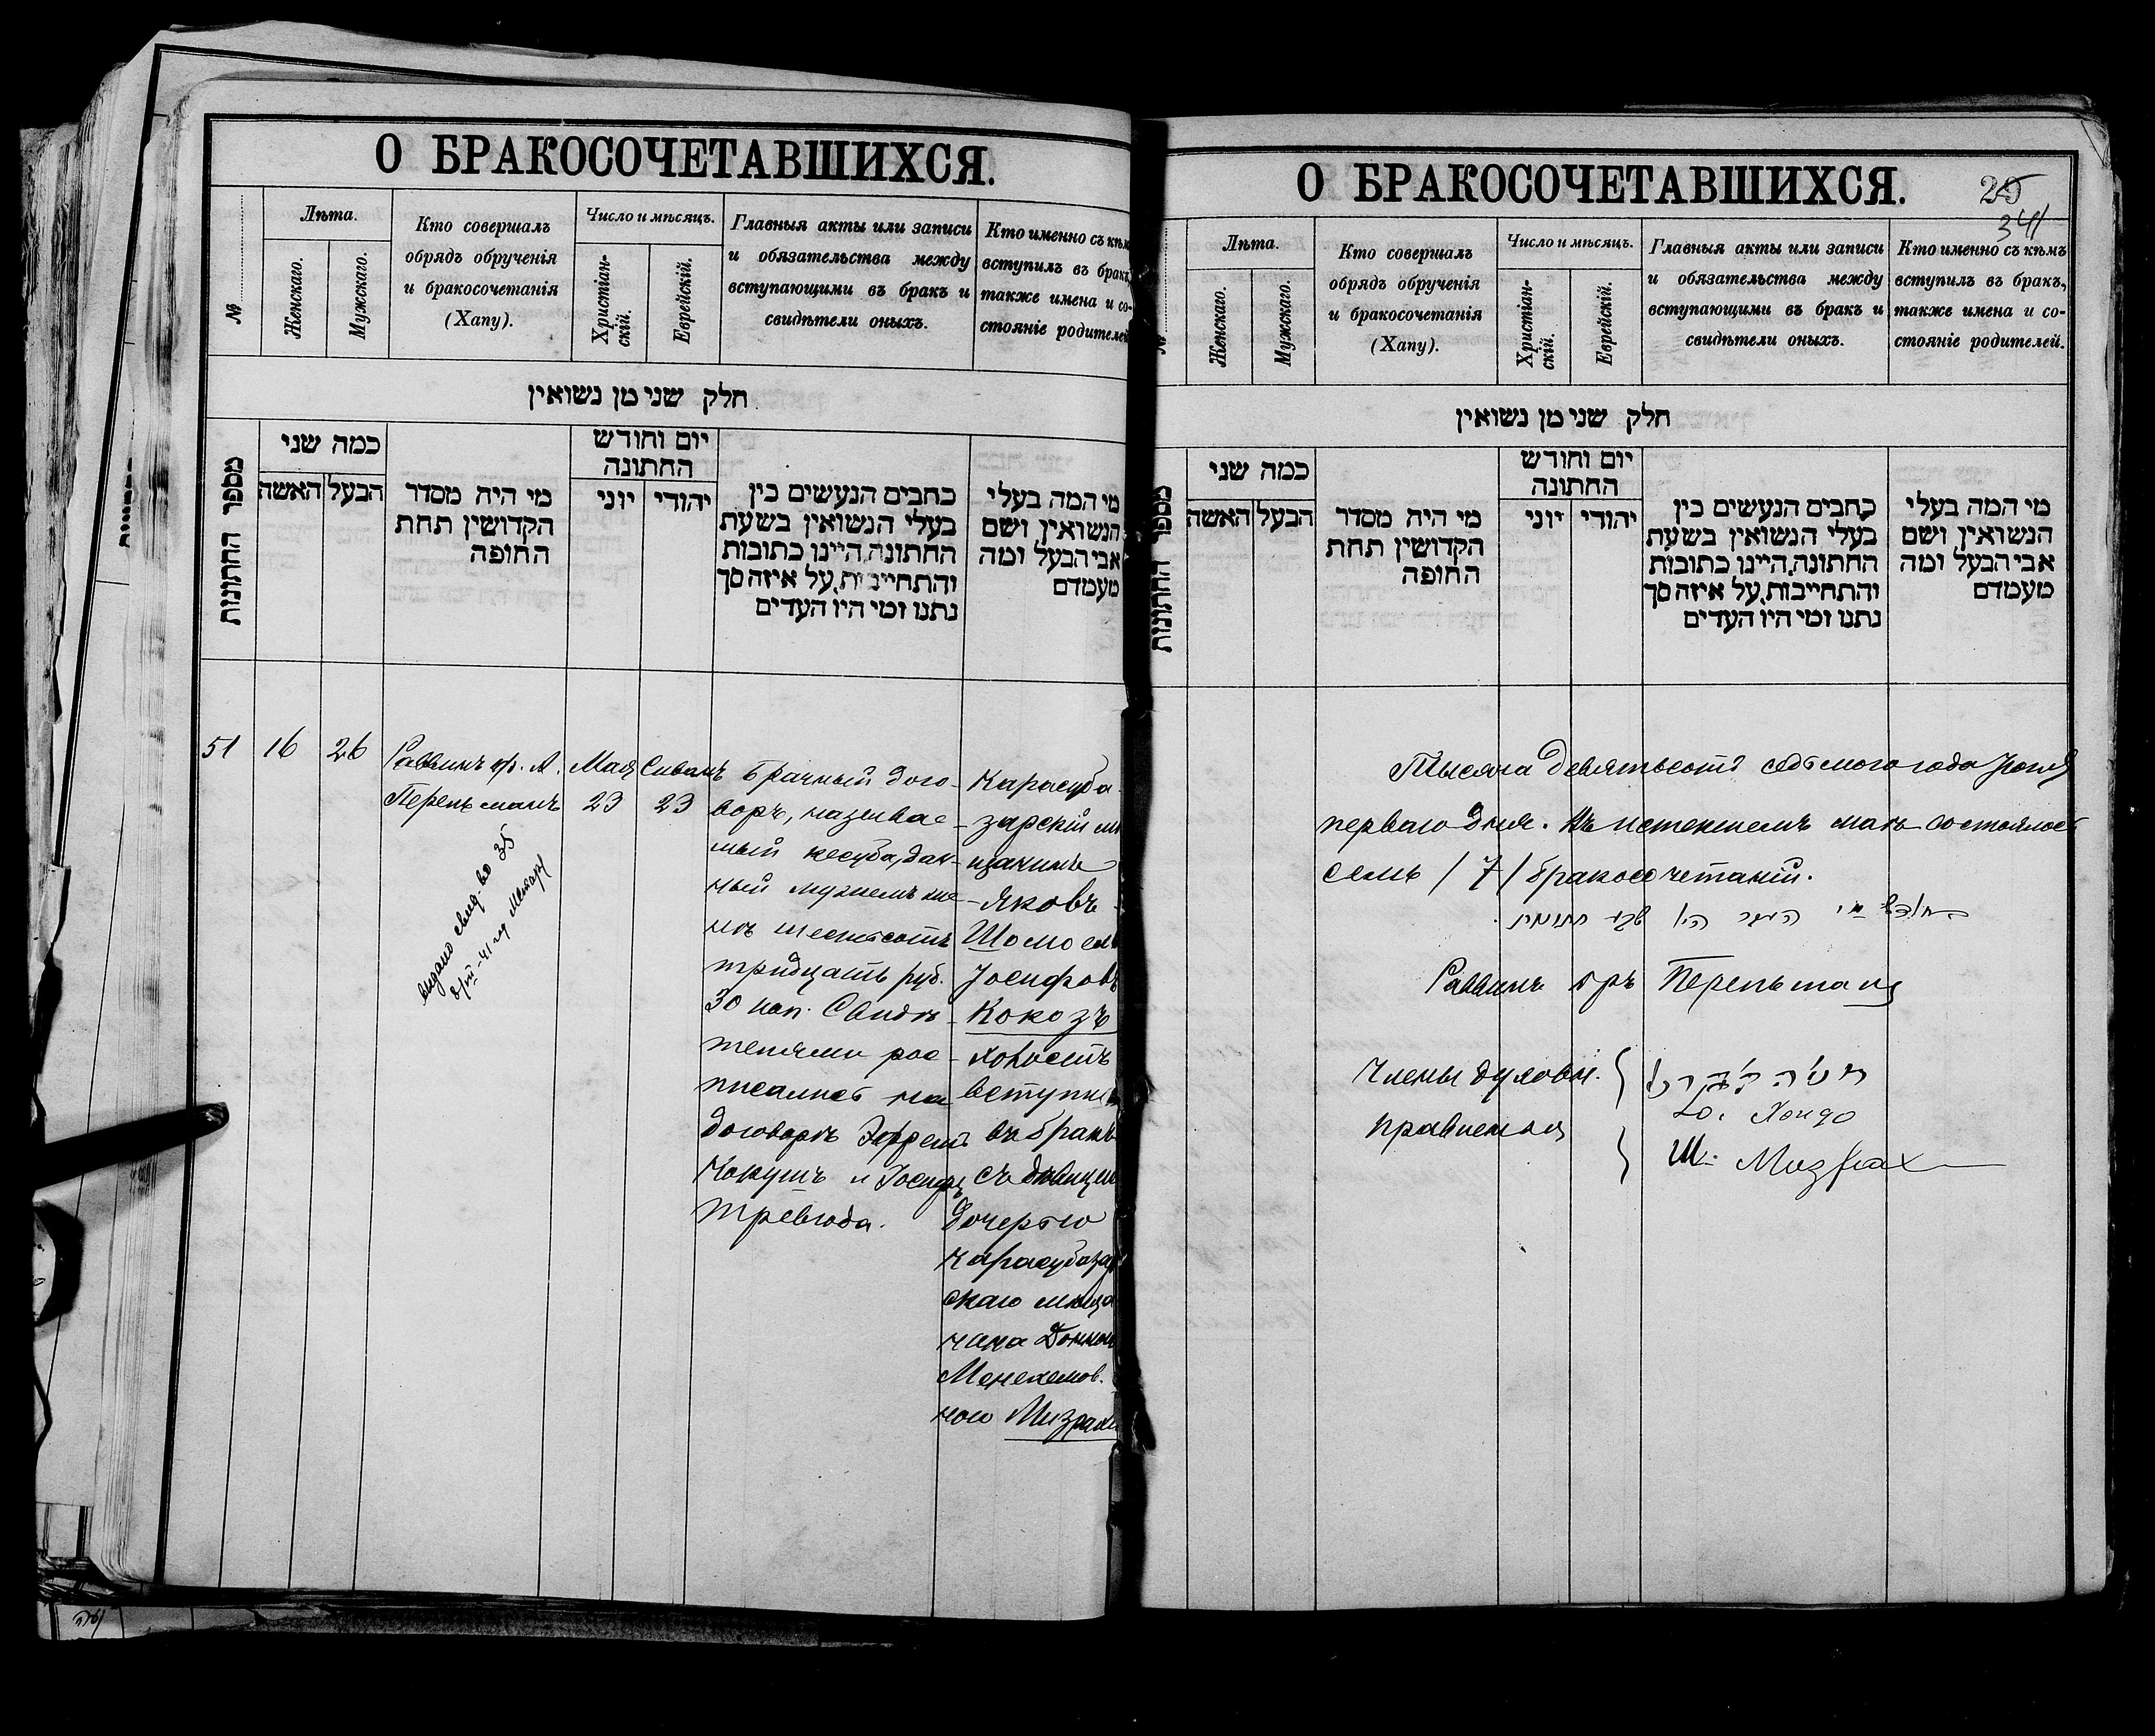 О БРАКОСОЧЕТАВШИХСЯ.
№
Лѣта.
Женскаго.
Мужскаго.
Кто совершалъ
обрядъ обрученія
и бракосочетанія
(Хапу).
Число и мѣсяцъ.
Христіан-
скій.
Еврейскій.
Главныя акты или записи
и обязательства между
вступающими въ бракъ и
свидѣтели оныхъ.
Кто именно съ кѣмъ
вступилъ въ бракъ,
также имена и со-
стояніе родителей
חלק שני מן נשואין
מספר החתונות
כמה שני
הבעל
האשה
מי היה מסדר
הקדושין תחת
החופה
יום וחודש
החתונה
יהודי
יוני
כתבים הנעשים בין
בעלי הנשואין בשעת
החתונה, היינו כתובות
והתחייבות, על איזה סך
נתנו ומי היו העדים
מי המה בעלי
הנשואין ושם
אבי הבעל ומה
מעמדם
51
16
26
Раввинъ А.
Перельманъ
Мая
23
Сиванъ
23
Брачный дого-
воръ, называе-
мый кесуба, дан-
ный мужемъ же-
нѣ шестьсотъ
тридцать руб.
30 коп. Свидѣ-
телями рос-
писались на
договорѣ Эфреим
Кокушъ и Іосифъ
Тревгода.
Карасуба-
зарскій мѣ
щанинъ
Яковъ
Шомоель
Іосифовъ
Кокозъ
холостъ
вступилъ
въ бракъ
съ дѣвицею
дочерью
карасубазар
скаго мѣща
нина
Менехемов.
ною Мизрахи
выдано свид. 35
О БРАКОСОЧЕТАВШИХСЯ.
25
341
№
Лѣта.
Женскаго.
Мужскаго.
Кто совершалъ
обрядъ обрученія
и бракосочетанія
(Хапу).
Число и мѣсяцъ.
Христіан-
скій.
Еврейскій.
Главныя акты или записи
и обязательства между
вступающими въ бракъ и
свидѣтели оныхъ.
Кто именно съ кѣмъ
вступилъ въ бракъ,
также имена и со-
стояніе родителей.
חלק שני מן נשואין
מספר החתונות
כמה שני
הבעל
האשה
מי היה מסדר
הקדושין תחת
החופה
יום וחודש
החתונה
יהודי
יוני
כתבים הנעשים בין
בעלי הנשואין בשעת
החתונה, היינו כתובות
והתחייבות, על איזה סך
נתנו ומי היו העדים
מי המה בעלי
הנשואין ושם
אבי הבעל ומה
מעמדם
Тысяча девятьсотъ седьмого года Іюня
перваго дня. Въ истекшемъ маѣ состоялось
семь /7/ бракосочетаній.
Раввинъ Перельманъ
Члены духовн.
правленія
Ю. Хондо
Ш. Мизрах